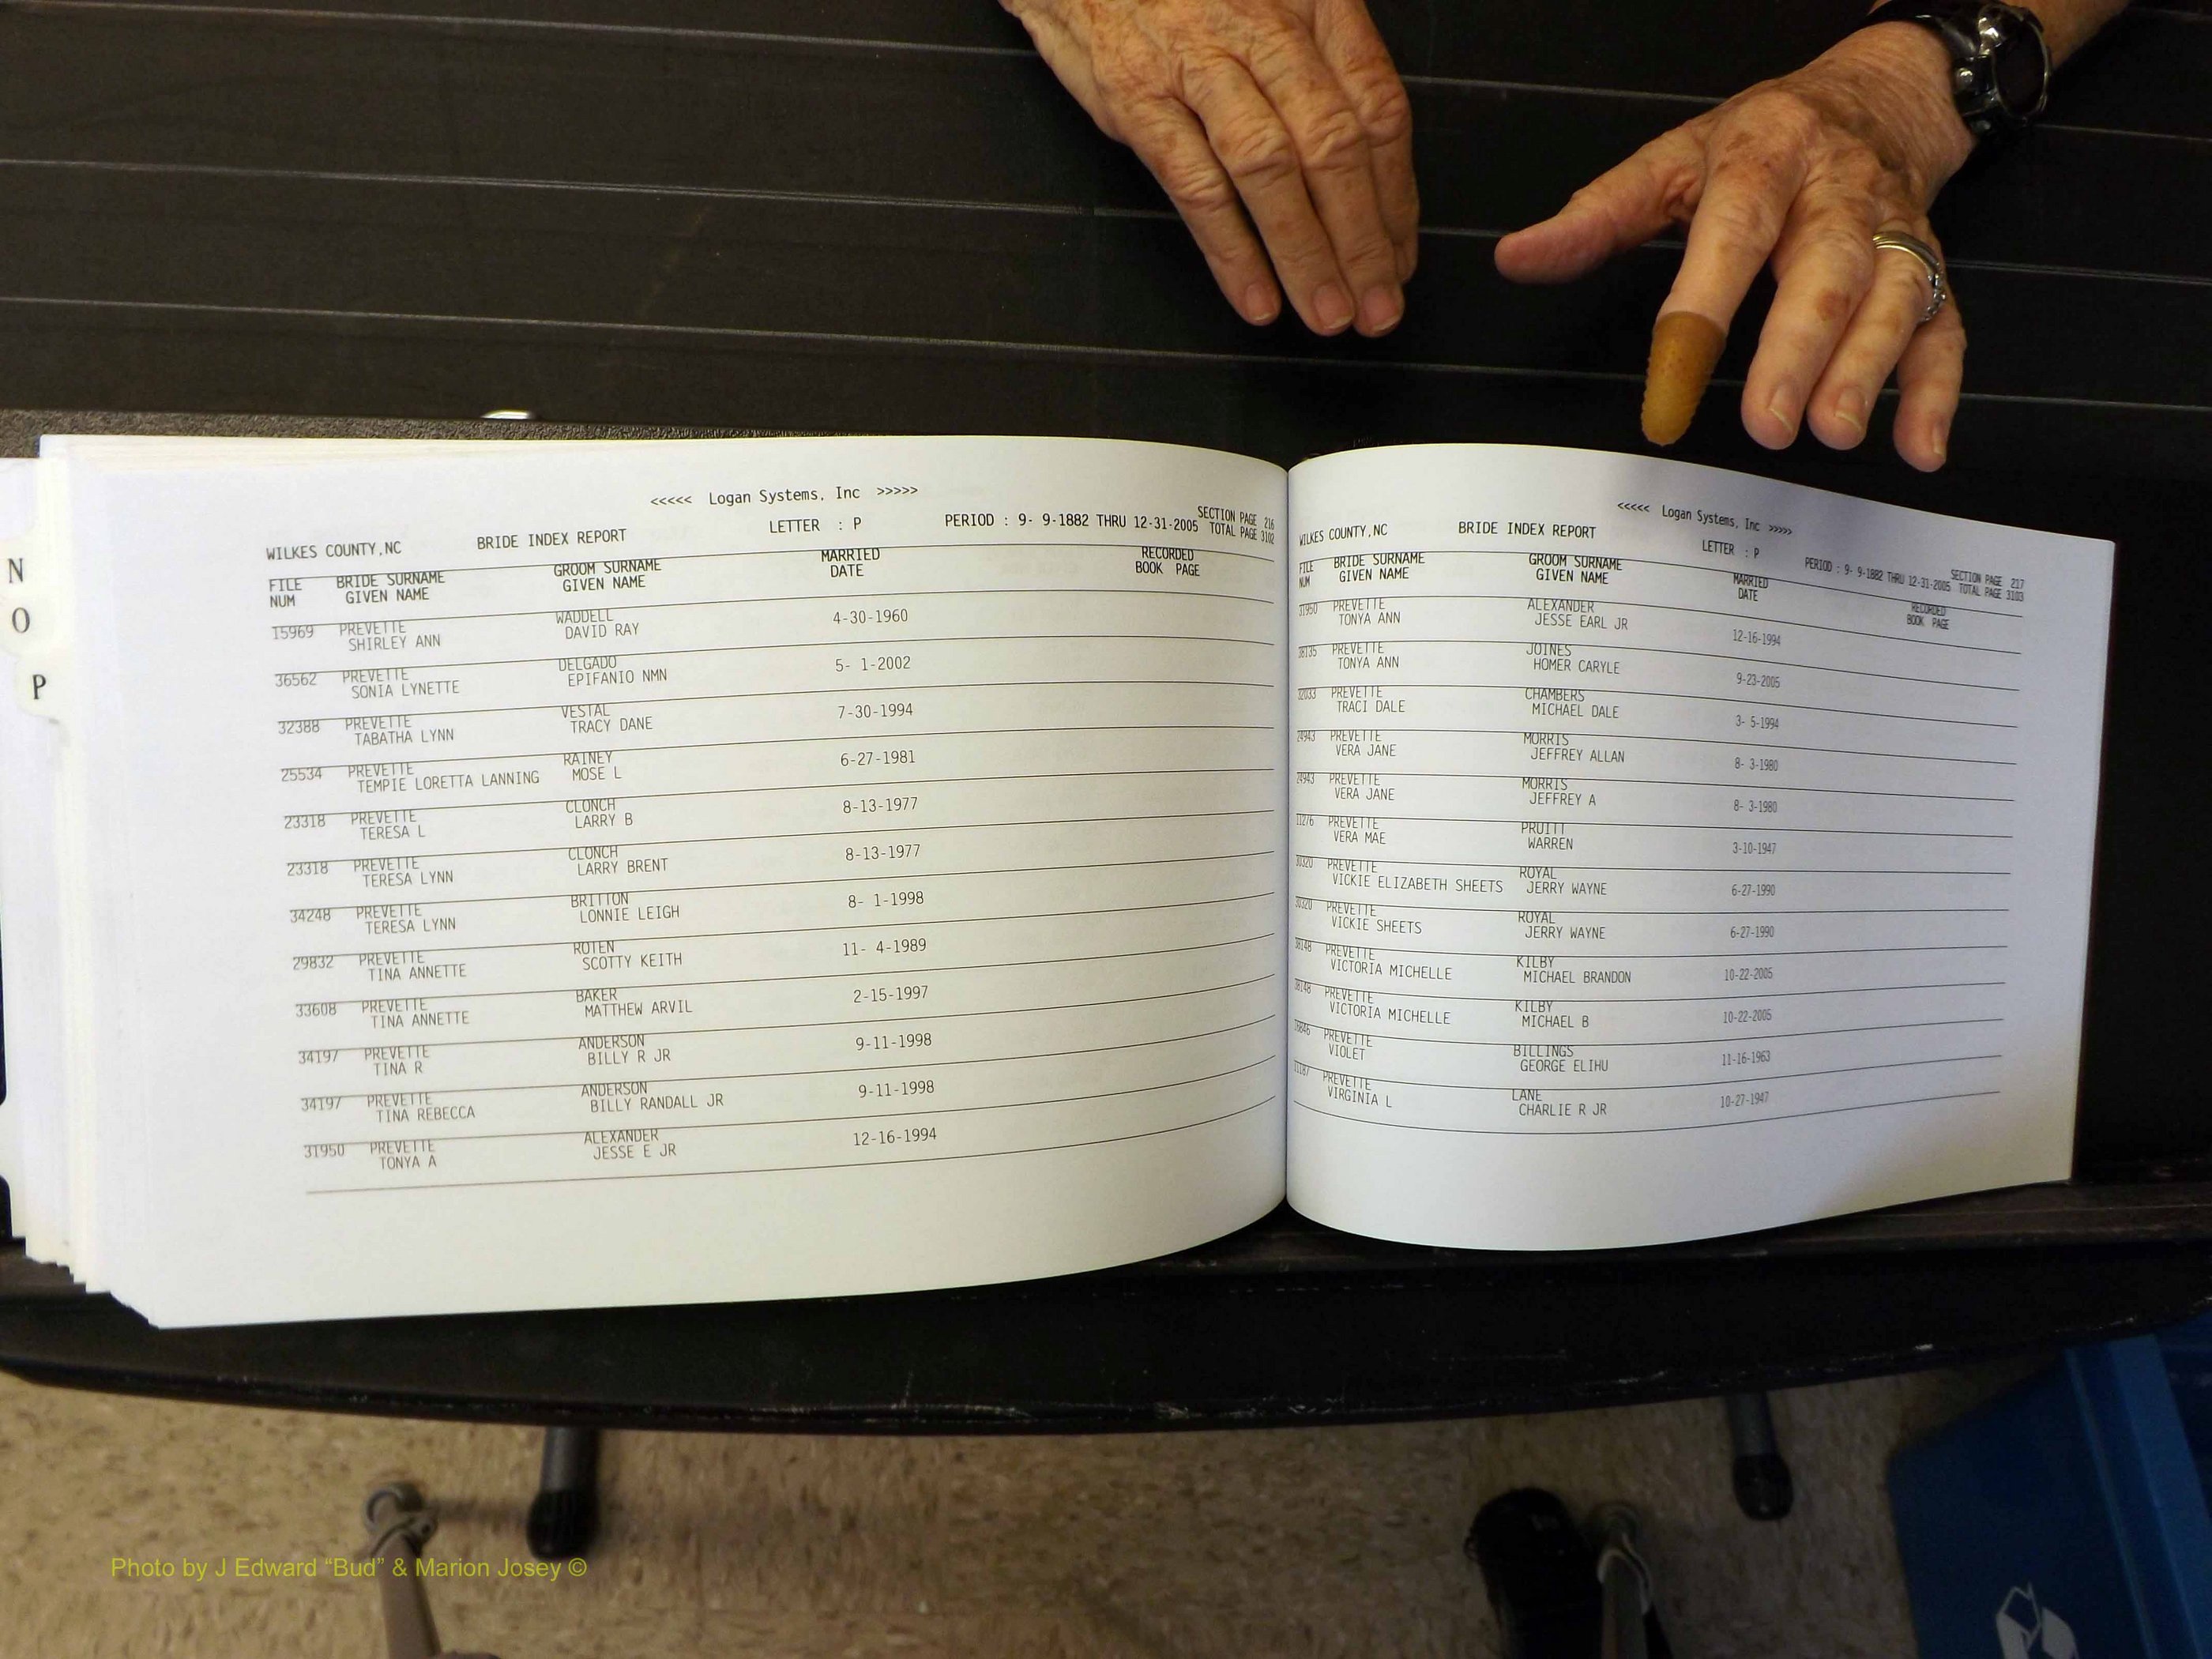 N
O
P
<<<<< Logan Systems, Inc >>>>>
SECTION PAGE 216
WILKES COUNTY,NC BRIDE INDEX REPORT LETTER : P PERIOD : 9- 9-1882 THRU 12-31-2005 TOTAL PAGE 3102
FILE BRIDE SURNAME GROOM SURNAME MARRIED RECORDED
NUM GIVEN NAME GIVEN NAME DATE BOOK PAGE
15969 PREVETTE WADDELL 4-30-1960
SHIRLEY ANN DAVID RAY
36562 PREVETTE DELGADO 5- 1-2002
SONIA LYNETTE EPIFANIO NMN
32388 PREVETTE VESTAL 7-30-1994
TABATHA LYNN TRACY DANE
25534 PREVETTE RAINEY 6-27-1981
TEMPIE LORETTA LANNING MOSE L
23318 PREVETTE CLONCH 8-13-1977
TERESA L LARRY B
23318 PREVETTE CLONCH 8-13-1977
TERESA LYNN LARRY BRENT
34248 PREVETTE BRITTON 8- 1-1998
TERESA LYNN LONNIE LEIGH
29832 PREVETTE ROTEN 11- 4-1989
TINA ANNETTE SCOTTY KEITH
33608 PREVETTE BAKER 2-15-1997
TINA ANNETTE MATTHEW ARVIL
34197 PREVETTE ANDERSON 9-11-1998
TINA R BILLY R JR
34197 PREVETTE ANDERSON 9-11-1998
TINA REBECCA BILLY RANDALL JR
31950 PREVETTE ALEXANDER 12-16-1994
TONYA A JESSE E JR
<<<<< Logan Systems, Inc >>>>>
SECTION PAGE 217
WILKES COUNTY,NC BRIDE INDEX REPORT LETTER : P PERIOD : 9- 9-1882 THRU 12-31-2005 TOTAL PAGE 3103
FILE BRIDE SURNAME GROOM SURNAME MARRIED RECORDED
NUM GIVEN NAME GIVEN NAME DATE BOOK PAGE
31950 PREVETTE ALEXANDER 12-16-1994
TONYA ANN JESSE EARL JR
38135 PREVETTE JOINES 9-23-2005
TONYA ANN HOMER CARYLE
PREVETTE CHAMBERS 3- 5-1994
TRACI DALE MICHAEL DALE
24943 PREVETTE MORRIS 8- 3-1980
VERA JANE JEFFREY ALLAN
24943 PREVETTE MORRIS 8- 3-1980
VERA JANE JEFFREY A
11276 PREVETTE PRUITT 3-10-1947
VERA MAE WARREN
30320 PREVETTE ROYAL 6-27-1990
VICKIE ELIZABETH SHEETS JERRY WAYNE
30320 PREVETTE ROYAL 6-27-1990
VICKIE SHEETS JERRY WAYNE
38148 PREVETTE KILBY 10-22-2005
VICTORIA MICHELLE MICHAEL BRANDON
38148 PREVETTE KILBY 10-22-2005
VICTORIA MICHELLE MICHAEL B
PREVETTE BILLINGS 11-16-1963
VIOLET GEORGE ELIHU
PREVETTE LANE 10-27-1947
VIRGINIA L CHARLIE R JR
Photo by J Edward “Bud” & Marion Josey ©